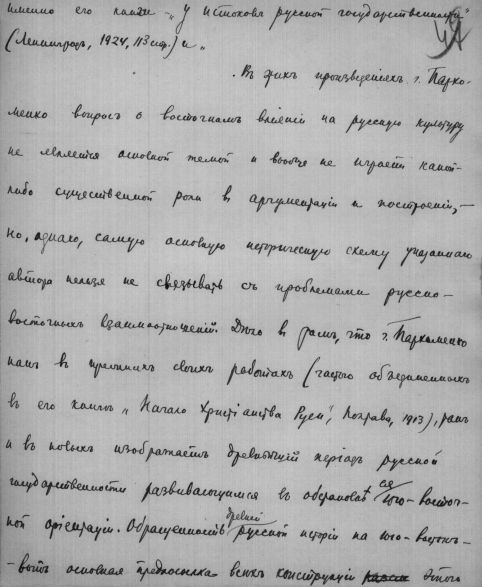 именно его книги – „У истоковъ русской государственности“
47
(Ленинградъ, 1924, 113 стр.) и „
. Въ этихъ произведенiяхъ г. Пархо-
менко вопросъ о восточномъ влiянiи на русскую культуру
не является основной темой и вообще не играетъ какой-
либо существенной роли въ аргументацiи и построенiи, –
но, однако, самую основную историческую схему указаннаго
автора нельзя не связывать съ проблемами русско-
восточныхъ взаимоотношенiй. Дѣло въ томъ, что г. Пархоменко
какъ въ прежнихъ своихъ работахъ (частью объединенныхъ
въ его книгѣ „Начало Христiанства Руси“, Полтава, 1913), такъ
и въ новыхъ изображаетъ древнѣйшiй перiодъ русской
государственности развивающимся въ обстановкѣ ея юго-восточ-
ной орiентацiи. Обращенность древней русской исторiи на юго-востокъ –
– вотъ основная предпосылка всѣхъ конструкцiй этого